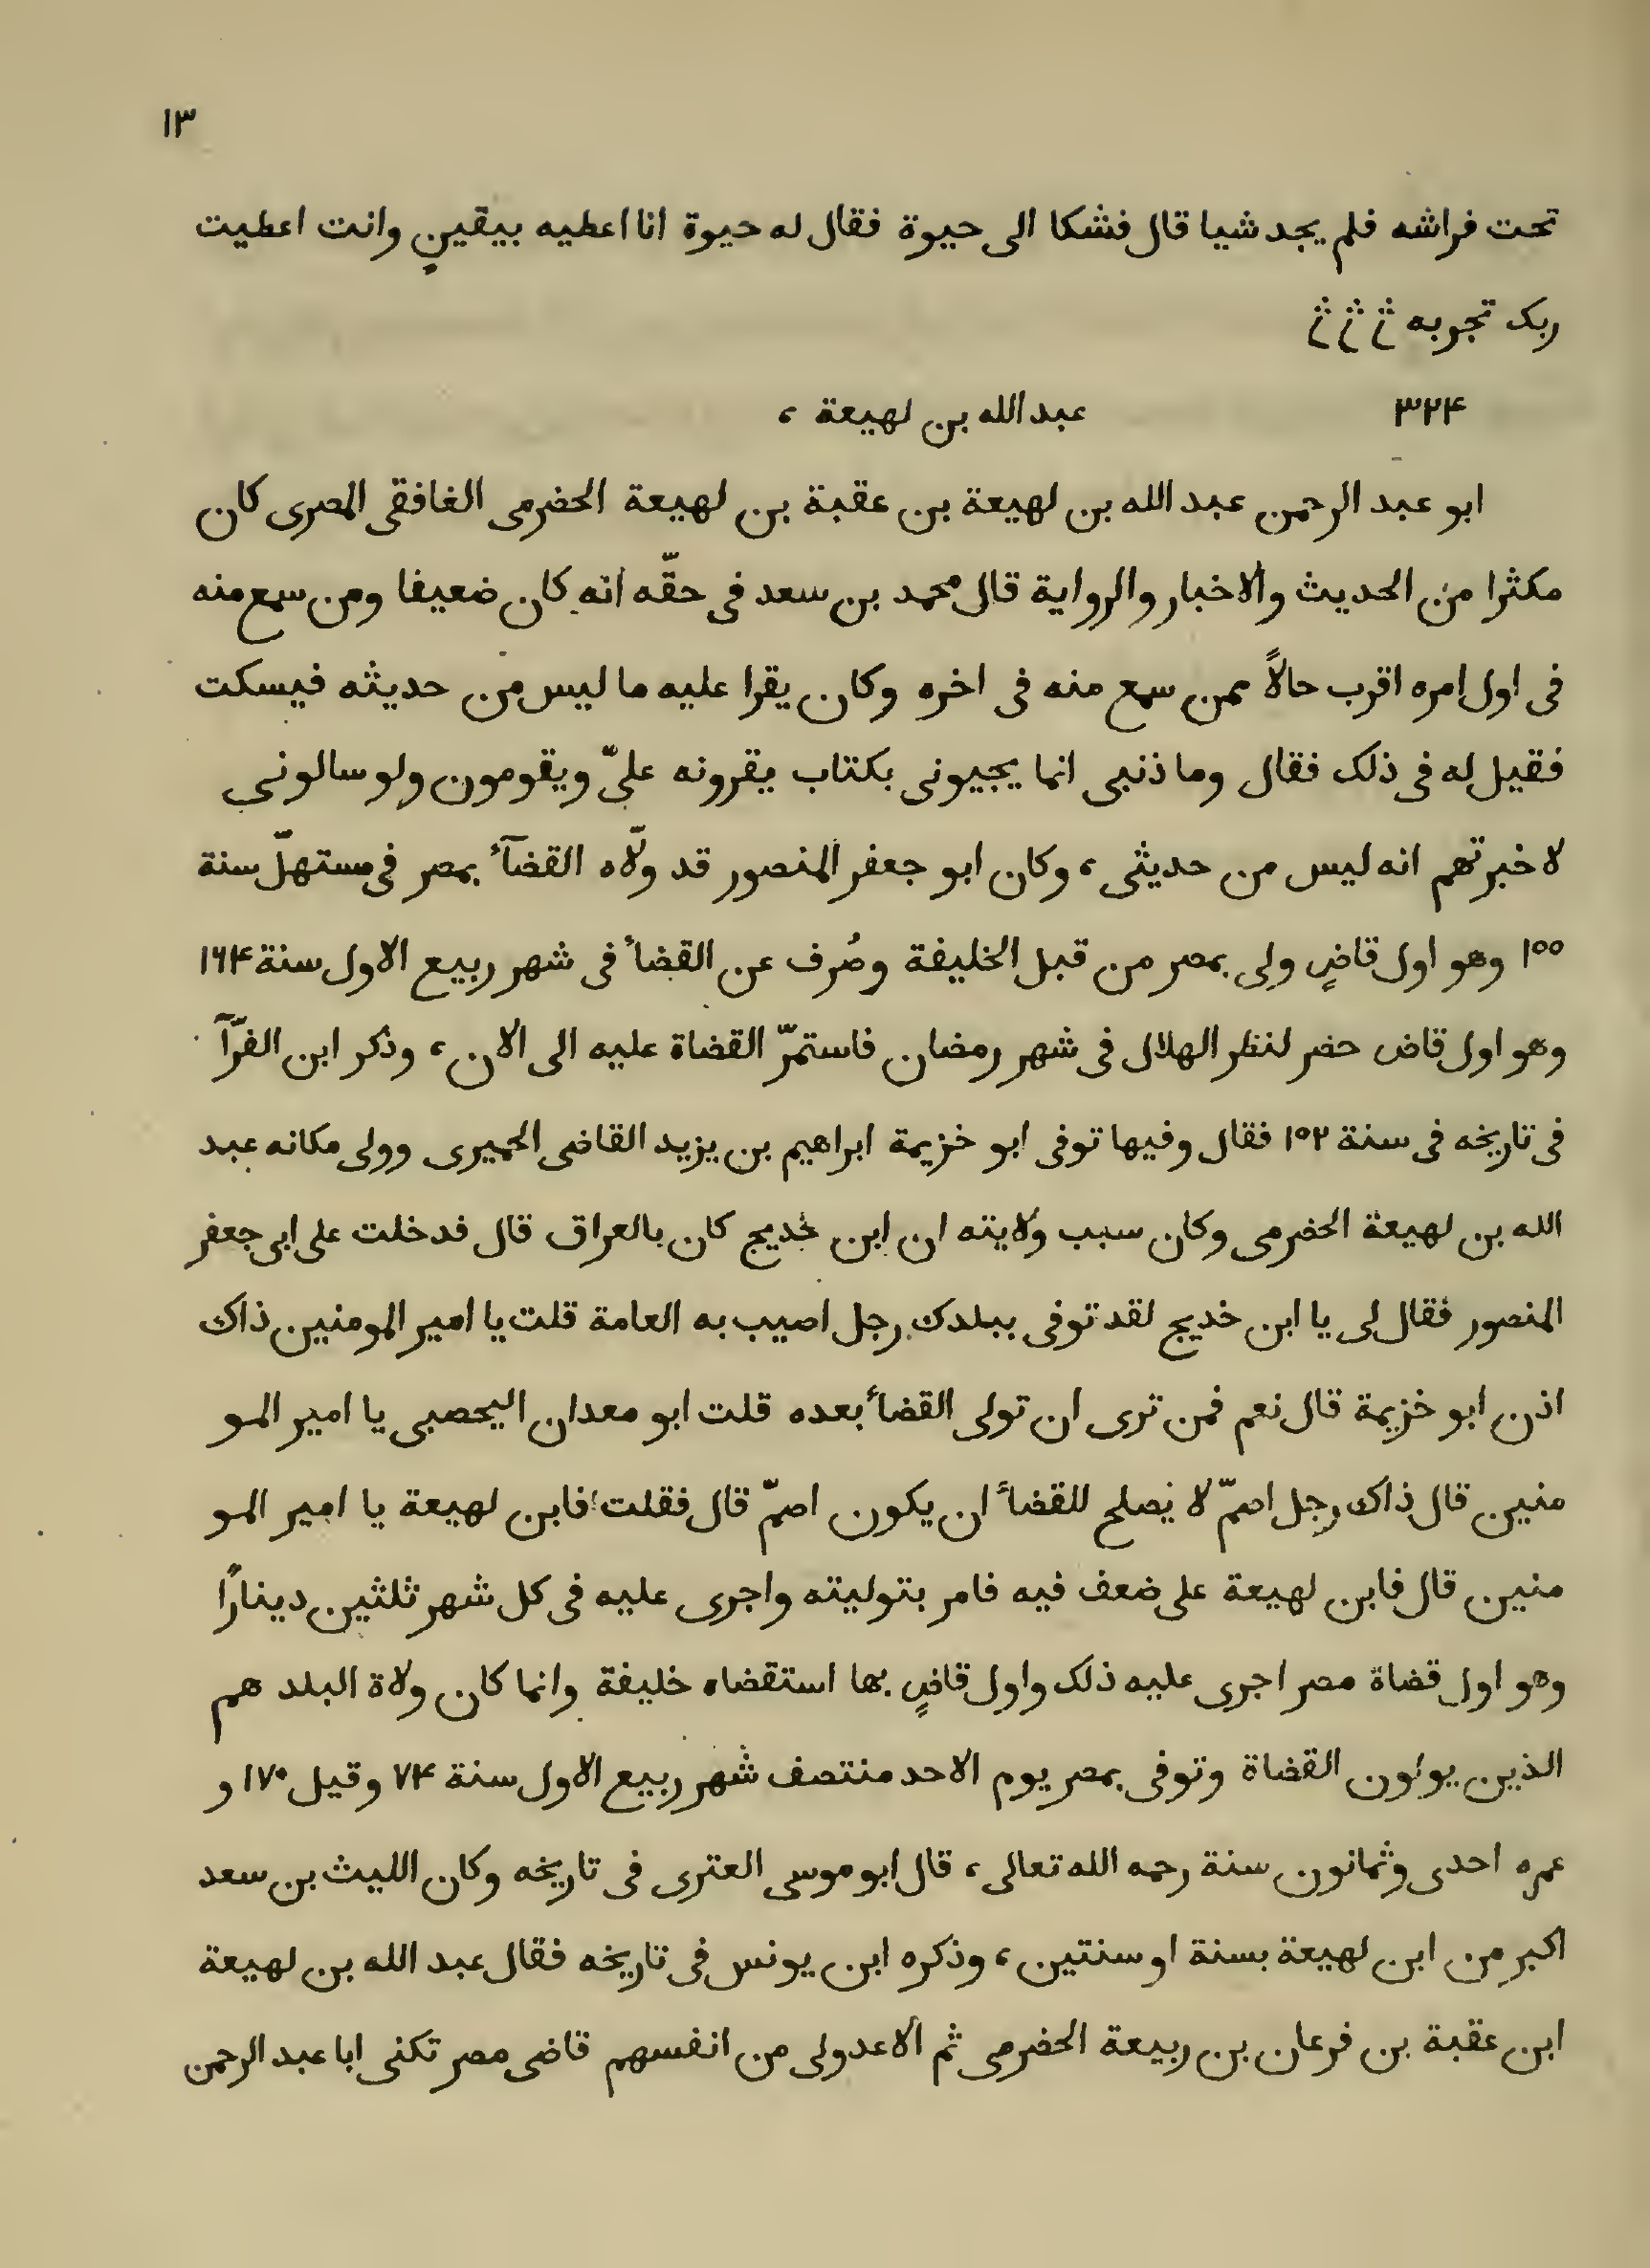 ١٣
تحت فراشه فلم يجد شيا قال فشكا الى حيوة فقال له حيوة انا اعطيه بيقينٍ وانت اعطيت
ربك تجربه
٣٢۴ عبد الله بن لهيعة ،
ابو عبد الرحمن عبد الله بن لهيعة بن عقبة بن لهيعة الحضرمى الغافقى المصرى كان
مكثرا من الحديث والاخبار والرواية قال محمد بن سعد فى حقّه انه كان ضعيفا ومن سمع منه
فى اول امره اقرب حالاً ممن سمع منه فى اخره وكان يقرا عليه ما ليس من حديثه فيسكت
فقيل له فى ذلك فقال وما ذنبى انما يجيونى بكتاب يقرونه علىّ ويقومون ولو سالونى
لاخبرتهم انه ليس من حديثى ، وكان ابو جعفر المنصور قد ولّاه القضآء بمصر فى مستهلّ سنة
١٥٥ وهو اول قاضٍ ولى بمصر من قبل الخليفة وصُرف عن القضاء فى شهر ربيع الاول سنة ١٦۴
وهو اول قاض حضر لنظر الهلال فى شهر رمضان فاستمرّ القضاة عليه الى الان ، وذكر ابن الفرّآ
فى تاريخه فى سنة ١٥٢ فقال وفيها توفى ابو خزيمة ابراهيم بن يزيد القاضى الحميرى وولى مكانه عبد
الله بن لهيعة الحضرمى وكان سبب ولايته ان ابن خديج كان بالعراق قال فدخلت على ابى جعفر
المنصور فقال لى يا ابن خديج لقد توفى ببلدك رجل اصيب به العامة قلت يا امير المومنين ذاك
اذن ابو خزيمة قال نعم فمن ترى ان تولى القضاء بعده قلت ابو معدان اليحصبى يا امير المو
منين قال ذاك رجل اصمّ لا يصلح للقضاء ان يكون اصمّ قال فقلت فابن لهيعة يا امير المو
منين قال فابن لهيعة على ضعف فيه فامر بتوليته واجرى عليه فى كل شهر ثلثين دينارًا
وهو اول قضاة مصر اجرى عليه ذلك واول قاضٍ بها استقضاه خليفة وانما كان ولاة البلد هم
الذين يولون القضاة وتوفى بمصر يوم الاحد منتصف شهر ربيع الاول سنة ٧۴ وقيل ١٧٠ و
عمره احدى وثمانون سنة رحمه الله تعالى ، قال ابو موسى العترى فى تاريخه وكان الليث بن سعد
اكبر من ابن لهيعة بسنة او سنتين ، وذكره ابن يونس فى تاريخه فقال عبد الله بن لهيعة
ابن عقبة بن فرعان بن ربيعة الحضرمى ثم الاعدولى من انفسهم قاضى مصر تكنى ابا عبد الرحمن